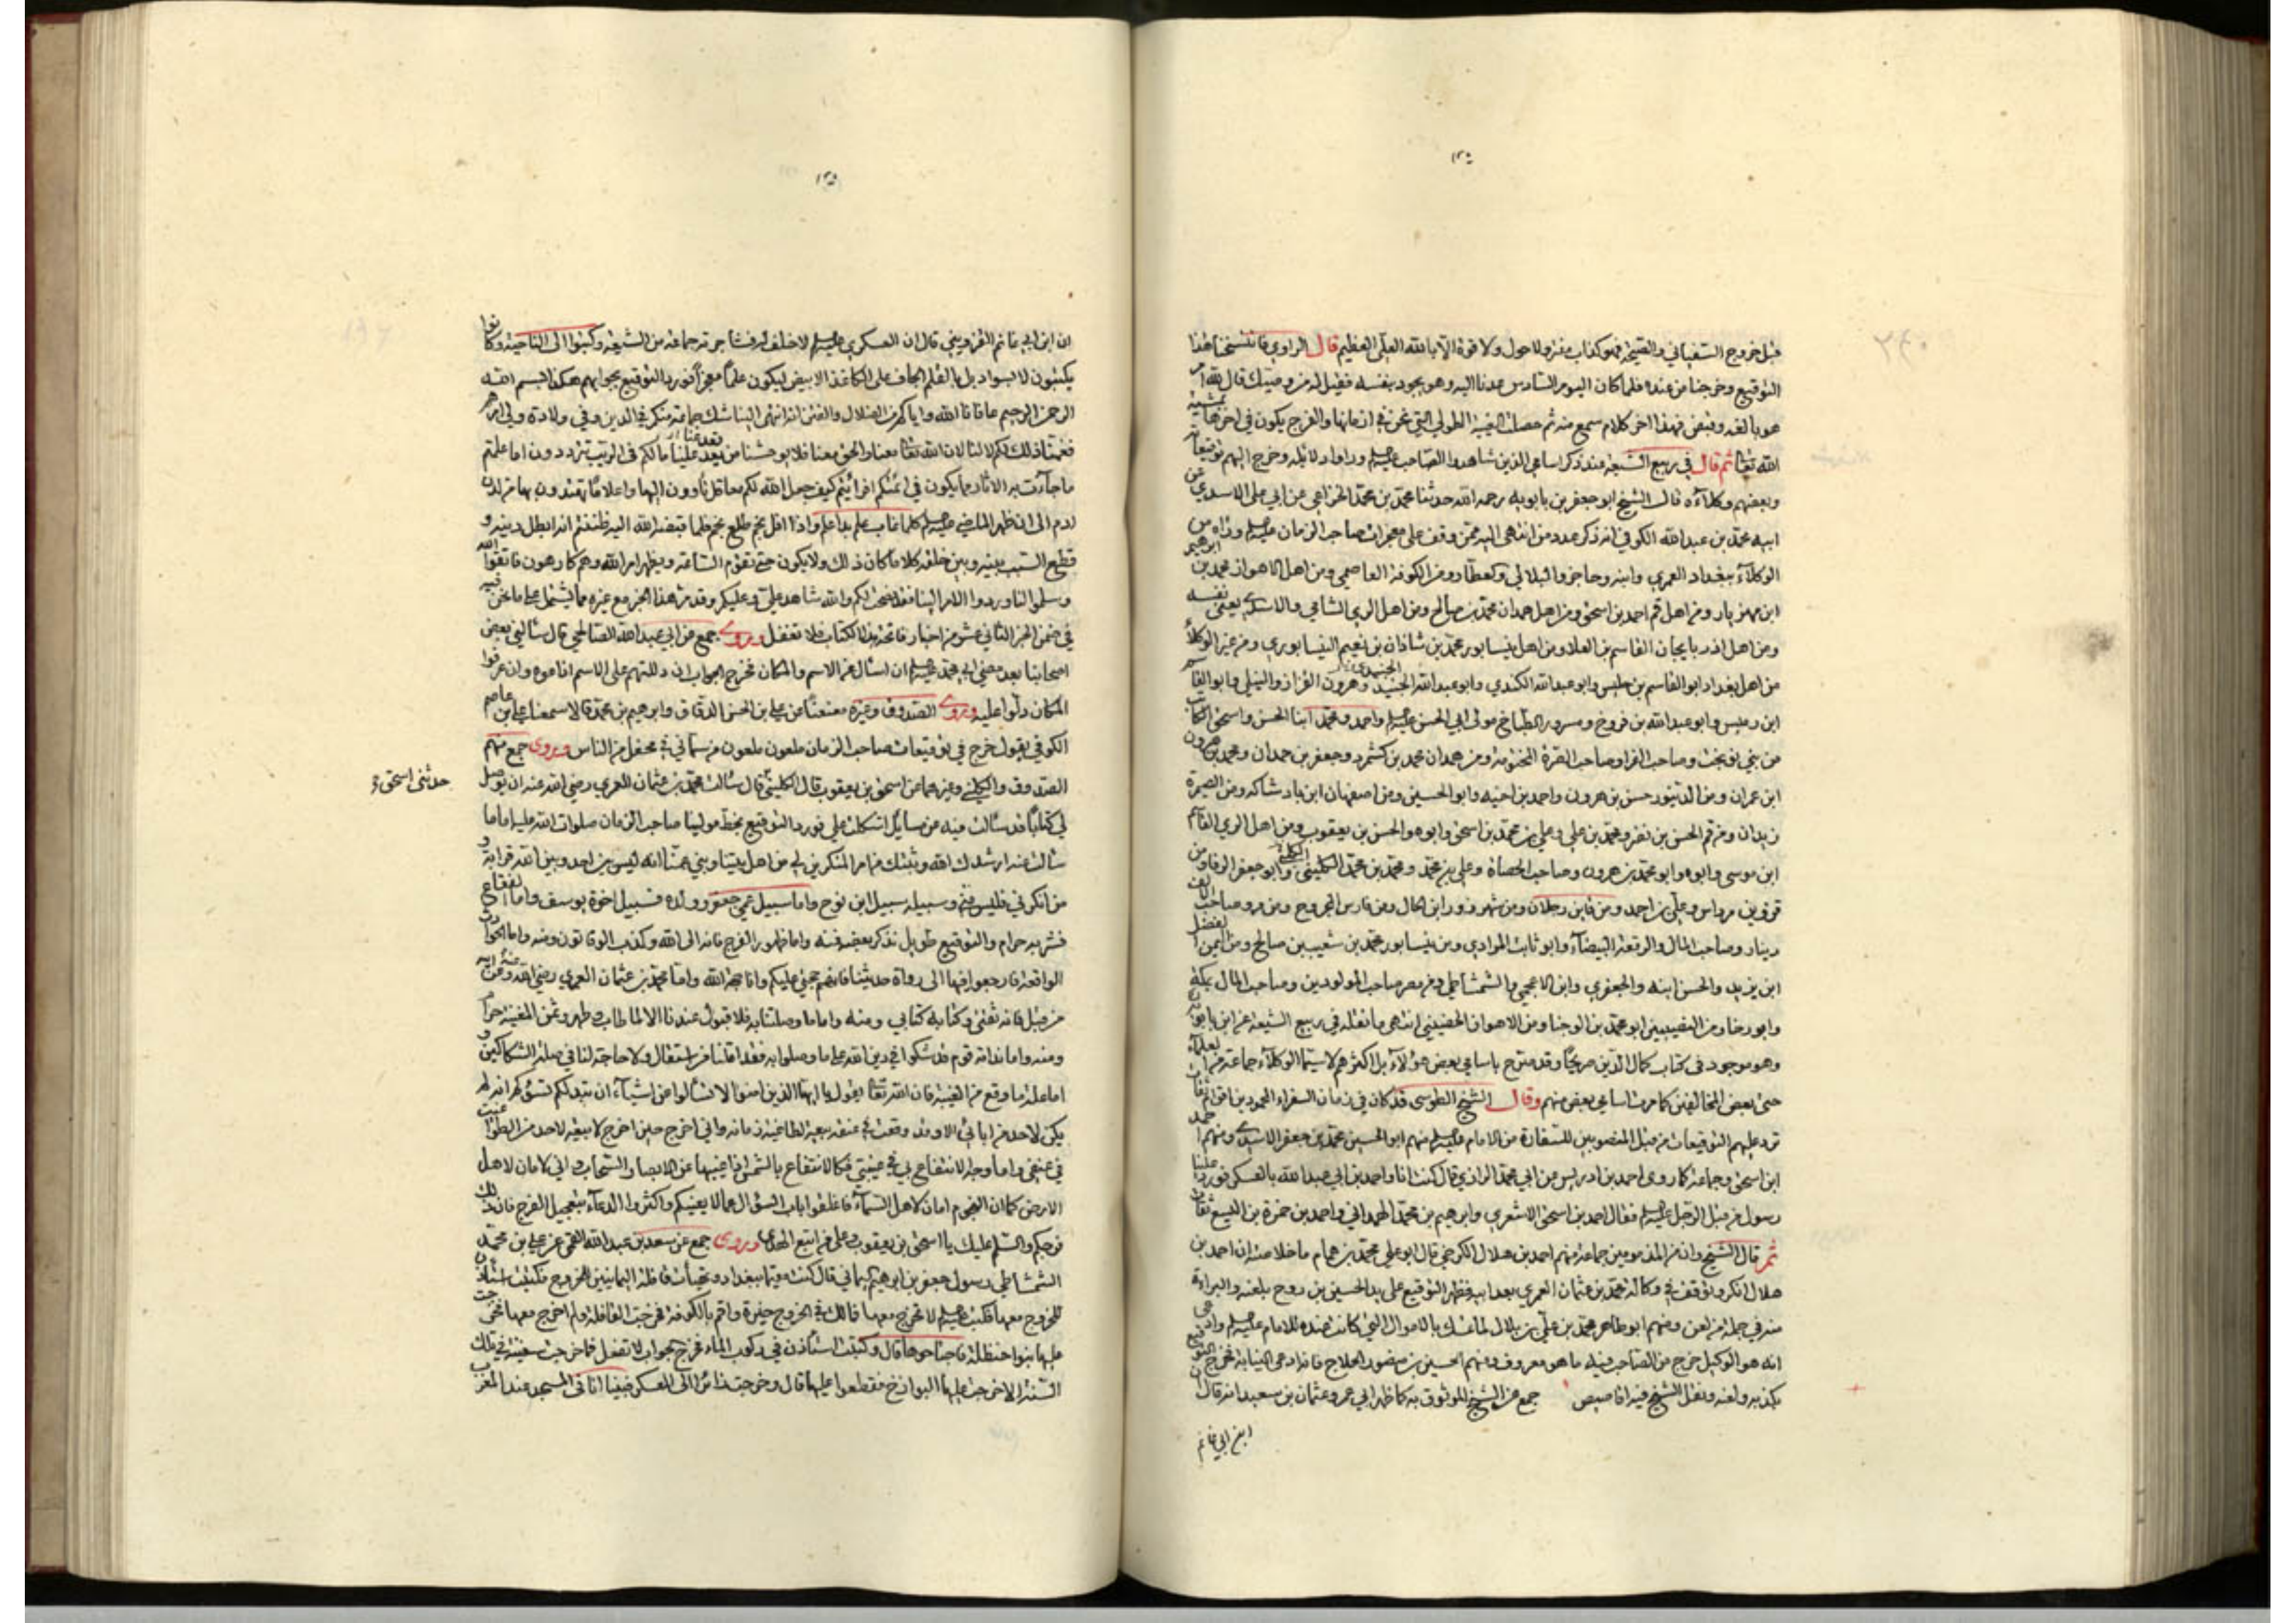 ١٣٥
قبل خروج السفياني والصيحة فهو كذاب مفتر ولا حول ولا قوة الا بالله العلي العظيم قال الراوي فانتسخنا هذا
التوقيع وخرجنا من عنده فلما كان اليوم السادس عدنا اليه وهو يجود بنفسه فقيل له من وصيك قال لله امر
هو بالغه وقبض فهذا اخر كلام سمع منه ثم حصلت الغيبة الطولى التي نحن في ازمانها والفرج يكون في اخرها بمشية
الله تعالى ثم قال في ربيع الشيعة عند ذكر اسامي الذين شاهدوا الصاحب عليه السلم وراوا دلائله وخرج اليهم توقيعاته
وبعضهم وكلاءه قال الشيخ ابو جعفر بن بابويه رحمه الله حدثنا محمد بن محمد الخزاعي عن ابي علي الاسدي عن
ابيه محمد بن عبد الله الكوفي انه ذكر عدد من انتهى اليه ممن وقف على معجزات صاحب الزمان عليه السلم وراه من
الوكلاء ببغداد العمري وابنه وحاجز والبلالي والعطار ومن الكوفة العاصمي ومن اهل الاهواز محمد بن ابرهيم
ابن مهزيار ومن اهل قم احمد بن اسحق ومن اهل همدان محمد بن صالح ومن اهل الري الشامي والاسدي يعني نفسه
ومن اهل اذربايجان القاسم بن العلا ومن اهل نيسابور محمد بن شاذان بن نعيم النيسابوري ومن غير الوكلاء
من اهل بغداد ابو القاسم بن حليس وابو عبد الله الكندي وابو عبد الله الجنيد الجنيدي وهرون القزاز والنيلي وابو القاسم
ابن دميس وابو عبد الله بن فروخ ومسرور الطباخ مولى ابي الحسن عليه السلم واحمد ومحمد ابنا الحسن واسحق الكاتب
من بني نوبخت وصاحب الفرا وصاحب الصرة المختومة ومن همدان محمد بن كشمرد وجعفر بن حمدان ومحمد بن هرون
ابن عمران ومن الدينور حسن بن هرون واحمد بن اخيه وابو الحسين ومن اصفهان ابن بادشاكه ومن الصيمرة
زيدان ومن قم الحسن بن نضر ومحمد بن علي وعلي بن محمد بن اسحق وابوه والحسن بن يعقوب ومن اهل الري القاسم
ابن موسى وابوه وابو محمد بن هرون وصاحب الحصاة وعلي بن محمد ومحمد بن محمد الكليني وابو جعفر الرفا ومن
قزوين مرداس وعلي بن احمد ومن قابس رجلان ومن شهرزور ابن الخال ومن فارس المجروح ومن مرو صاحب الالف
دينار وصاحب المال والرقعة البيضاء وابو ثابت الموادي ومن نيسابور محمد بن شعيب بن صالح ومن اليمن الفضل
ابن يزيد والحسن ابنه والجعفري وابن الاعجمي والشمشاطي ومن مصر صاحب المولودين وصاحب المال بمكة
وابو رخا ومن النصيبين ابو محمد بن الوجنا ومن الاهواز الحضيني انتهى ما نقله في ربيع الشيعة عن ابن بابويه
وهو موجود في كتاب كمال الدين صريحا وقد صرح باسامي بعض هؤلاء بل اكثرهم لا سيما الوكلاء جماعة من العلماء
حتى بعض المخالفين كما مرت اسامي بعض منهم وقال الشيخ الطوسي قد كان في زمان السفراء المحمودين اقوام ثقات
ترد عليهم التوقيعات من قبل المنصوبين للسفارة من الامام عليه السلم منهم ابو الحسين محمد بن جعفر الاسدي ومنهم احمد
ابن اسحق وجماعة كما روى احمد بن ادريس عن ابي محمد الرازي قال كنت انا واحمد بن ابي عبد الله بالعسكر فورد علينا
رسول من قبل الرجل عليه السلم فقال احمد بن اسحق الاشعري وابرهيم بن محمد الهمداني واحمد بن حمزة بن اليسع ثقات
ثم قال الشيخ وان من المذمومين جماعة منهم احمد بن هلال الكرخي قال ابو علي محمد بن همام ما خلاصته ان احمد بن
هلال انكر وتوقف في وكالة محمد بن عثمان العمري بعد ابيه فظهر التوقيع على يد الحسين بن روح بلعنه والبراءة
منه في جملة من لعن ومنهم ابو طاهر محمد بن علي بن بلال لما تمسك بالاموال التي كانت عنده للامام عليه السلم وادعى
انه هو الوكيل خرج من الصاحب فيه ما هو معروف ومنهم الحسين بن منصور الحلاج فانه ادعى النيابة فخرج التوقيع
بكذبه ولعنه ونقل الشيخ فيه اقاصيص جمع عن الشيخ الموثوق به كما ظهر ابي عمرو عثمان بن سعيد انه قال ان
ابن ابي غانم
١٣٥
ان ابن ابي غانم القزويني قال ان العسكري عليه السلم لا خلف له فشاجرته جماعة من الشيعة وكتبوا الى الناحية وكانوا
يكتبون لا بسواد بل بالقلم الجاف على الكاغذ الابيض ليكون علما معجزا فورد التوقيع بجوابهم هكذا بسم الله
الرحمن الرحيم عافانا الله واياكم من الضلال والفتن انه انتهى الينا شك جماعة منكم في الدين وفي ولادة ولي امرهم
فغمنا ذلك لكم لا لنا لان الله تعالى معنا والحق معنا فلا يوحشنا من بعد علينا ما لكم في الريب تترددون اما علمتم
ما جاءت به الاثار مما يكون في ائمتكم افرايتم كيف جعل الله لكم معاقل تاوون اليها واعلاما تهتدون بها من لدن
ادم الى ان ظهر الماضي عليه السلم كلما غاب علم بدا علم واذا افل نجم طلع نجم فلما قبضه الله اليه ظننتم انه ابطل دينه و
قطع السبب بينه وبين خلقه كلا ما كان ذلك ولا يكون حتى تقوم الساعة ويظهر امر الله وهم كارهون فاتقوا الله
وسلموا لنا وردوا الامر الينا فقد نصحت لكم والله شاهد علي وعليكم وقد مر هذا الخبر مع غيره مما يشتمل على ما نحن فيه
في ضمن الخبر الثاني عشر من اخبار فاتحة هذا الكتاب فلا تغفل وروى جمع عن ابي عبد الله الصالحي قال سالني بعض
اصحابنا بعد مضي ابي محمد عليه السلم ان اسال عن الاسم والمكان فخرج الجواب ان دللتهم على الاسم اذاعوه وان عرفوا
المكان دلوا عليه وروى الصدوق وغيره معنعنا عن علي بن الحسن الدقاق وابرهيم بن محمد قالا سمعنا علي بن عاصم
الكوفي يقول خرج في توقيعات صاحب الزمان ملعون ملعون من سماني في محفل من الناس وروى جمع منهم
الصدوق والكليني وغيرهما عن اسحق بن يعقوب قال الكليني قال سالت محمد بن عثمان العمري رضي الله عنه ان يوصل
حدثني اسحق
لي كتابا قد سالت فيه عن مسايل اشكلت علي فورد التوقيع بخط مولينا صاحب الزمان صلوات الله عليه اما ما
سالت عنه ارشدك الله وثبتك من امر المنكرين لي من اهل بيتنا وبني عمنا انه ليس بين احد وبين الله قرابة و
من انكرني فليس مني وسبيله سبيل ابن نوح واما سبيل عمي جعفر وولده فسبيل اخوة يوسف واما الفقاع
فشربه حرام والتوقيع طويل نذكر بعضه فمنه واما ظهور الفرج فانه الى الله وكذب الوقاتون ومنه واما الحوادث
الواقعة فارجعوا فيها الى رواة حديثنا فانهم حجتي عليكم وانا حجة الله واما محمد بن عثمان العمري رضي الله عنه وعن ابيه
من قبل فانه ثقتي وكتابه كتابي ومنه واما ما وصلتنا به فلا قبول عندنا الا لما طاب وطهر وثمن المغنية حرام
ومنه واما ندامة قوم قد شكوا في دين الله على ما وصلوا به فقد اقلنا من استقال ولا حاجة لنا في صلة الشاكين و
اما علة ما وقع من الغيبة فان الله تعالى يقول يا ايها الذين امنوا لا تسالوا عن اشياء ان تبد لكم تسؤكم انه لم
يكن لاحد من ابائي الا وقد وقعت في عنقه بيعة لطاغية زمانه واني اخرج حين اخرج لا بيعة لاحد من الطواغيت
في عنقي واما وجه الانتفاع بي في غيبتي فكالانتفاع بالشمس اذا غيبها عن الابصار السحاب واني لامان لاهل
الارض كما ان النجوم امان لاهل السماء فاغلقوا ابواب السؤال عما لا يعنيكم واكثروا الدعاء بتعجيل الفرج فان ذلك
فرجكم والسلم عليك يا اسحق بن يعقوب وعلى من اتبع الهدى وروى جمع عن سعد بن عبد الله القمي عن علي بن محمد
الشمشاطي رسول جعفر بن ابرهيم اليماني قال كنت مقيما ببغداد وتهيات قافلة اليمانيين للخروج فكتبت استاذن
للخروج معها فكتب عليه السلم لا تخرج معها فما لك في الخروج خيرة واقم بالكوفة فخرجت القافلة ولم اخرج معها فخرجت
عليها بنو حنظلة فاجتاحوها قال وكتبت استاذن في ركوب الماء فخرج الجواب لا تفعل فما خرجت سفينة في تلك
السنة الا خرجت عليها البوارج فقطعوا عليها قال وخرجت زائرا الى العسكر فبينا انا في المسجد عند المغرب